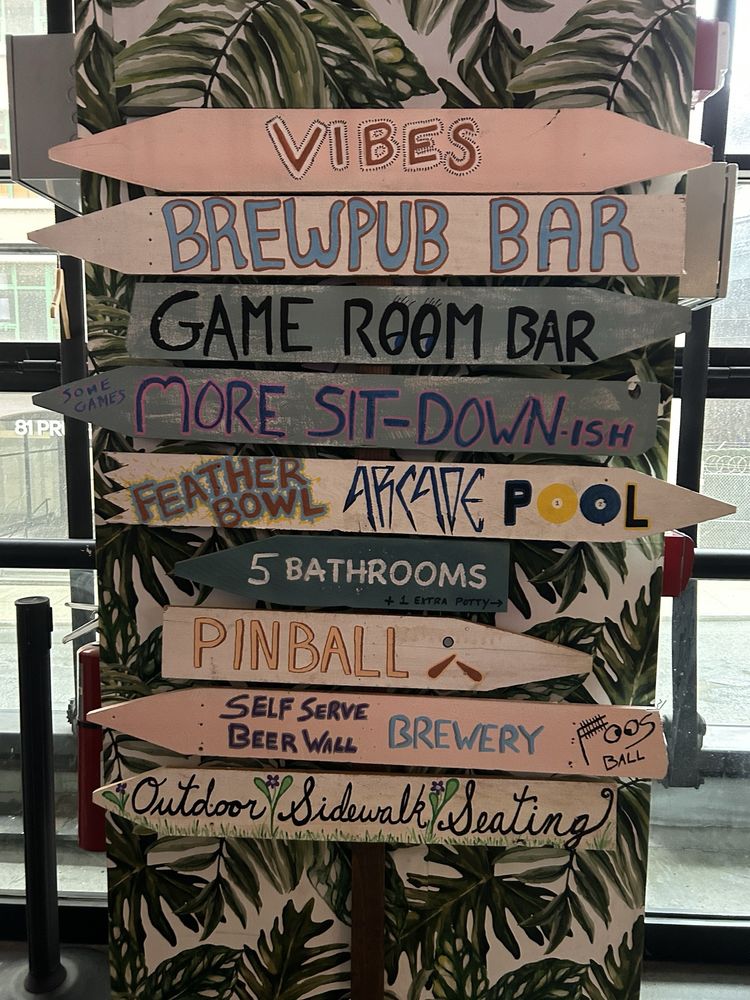 VIBES
BREWPUB BAR
GAME ROOM BAR
SOME GAMES MORE SIT-DOWN-ISH
FEATHER BOWL ARCADE POOL
5 BATHROOMS
+ 1 EXTRA POTTY→
PINBALL
SELF SERVE BEER WALL BREWERY FOOS BALL
Outdoor Sidewalk Seating
81 PR